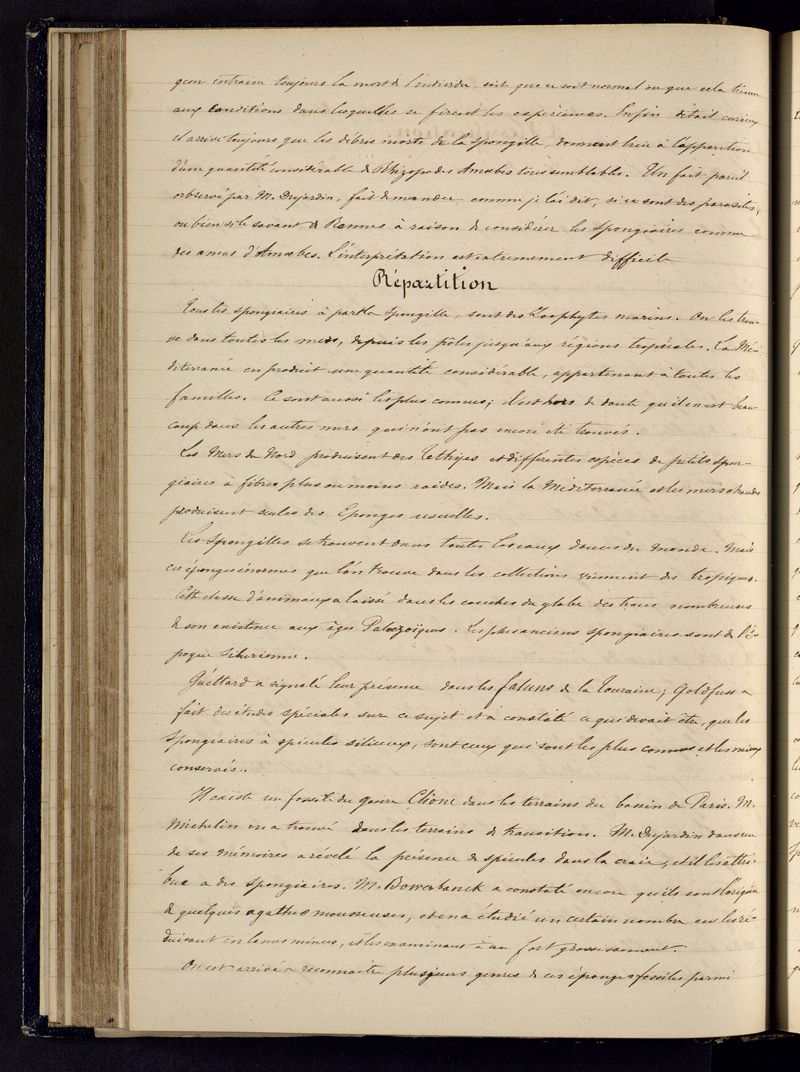 qu'on entraine toujours la mort de l'individu, soit que ce soit normal ou que cela tienne
aux conditions dans lesquelles se firent les expériences. Enfin détail curieux
il arrive toujours que les débris morts de la Spongille, donnent lieu à l'apparition
d'une quantité considérable de Rhizopodes Amoebes tous semblables. Un fait pareil
observé par M. Dujardin, fait demander comme je l'ai dit, si ce sont des parasites,
ou bien si le savant de Rennes à raison de considérer les Spongiaires comme
des amas d'Amoebes. L'interprétation est extrêmement difficile
Répartition
Tous les spongiaires à part la Spongille, sont des Zoophytes marins. On les trou-
ve dans toutes les mers, depuis les pôles jusqu'aux régions tropicales. La Mé-
diterranée en produit une quantité considérable, appartenant à toutes les
familles. Ce sont aussi les plus connues; il est hors de doute qu'il en est beau
coup dans les autres mers qui n'ont pas encore été trouvés.
Les Mers du Nord produisent des Téthyes et différentes espèces de petits Spon-
giaires à fibres plus ou moins raides. Mais la Méditerranée et les mers chaudes
produisent seules des Eponges usuelles.
Les Spongilles se trouvent dans toutes les eaux douces du monde. Mais
ces éponges énormes que l'on trouve dans les collections viennent des tropiques.
Cette classe d'animaux a laissé dans les couches du globe des traces nombreuses
de son existence aux âges Paleozoïques. Les plus anciens Spongiaires sont de l'é-
poque silurienne.
Guéttard a signalé leur présence dans les faluns de la Touraine; Goldfuss a
fait des études spéciales sur ce sujet et a constaté ce qui devait être, que les
Spongiaires à spicules siliceux, sont ceux qui sont les plus connus et les mieux
conservés.
Il existe un fossile du genre Clione dans les terrains du bassin de Paris. M.
Michelin en a trouvé dans les terrains de transition. M. Dujardin dans un
de ses mémoires a révélé la présence de spicules dans la craie, et il les attri-
bue a des Spongiaires. M. Bowerbanck a constaté encore qu'ils sont l'origine
de quelques agathes mousseuses, et en a étudié un certain nombre en les ré-
duisant en lames minces, et les examinant à un fort grossissement.
On est arrivé a reconnaitre plusieurs genres de ces éponges fossiles parmi